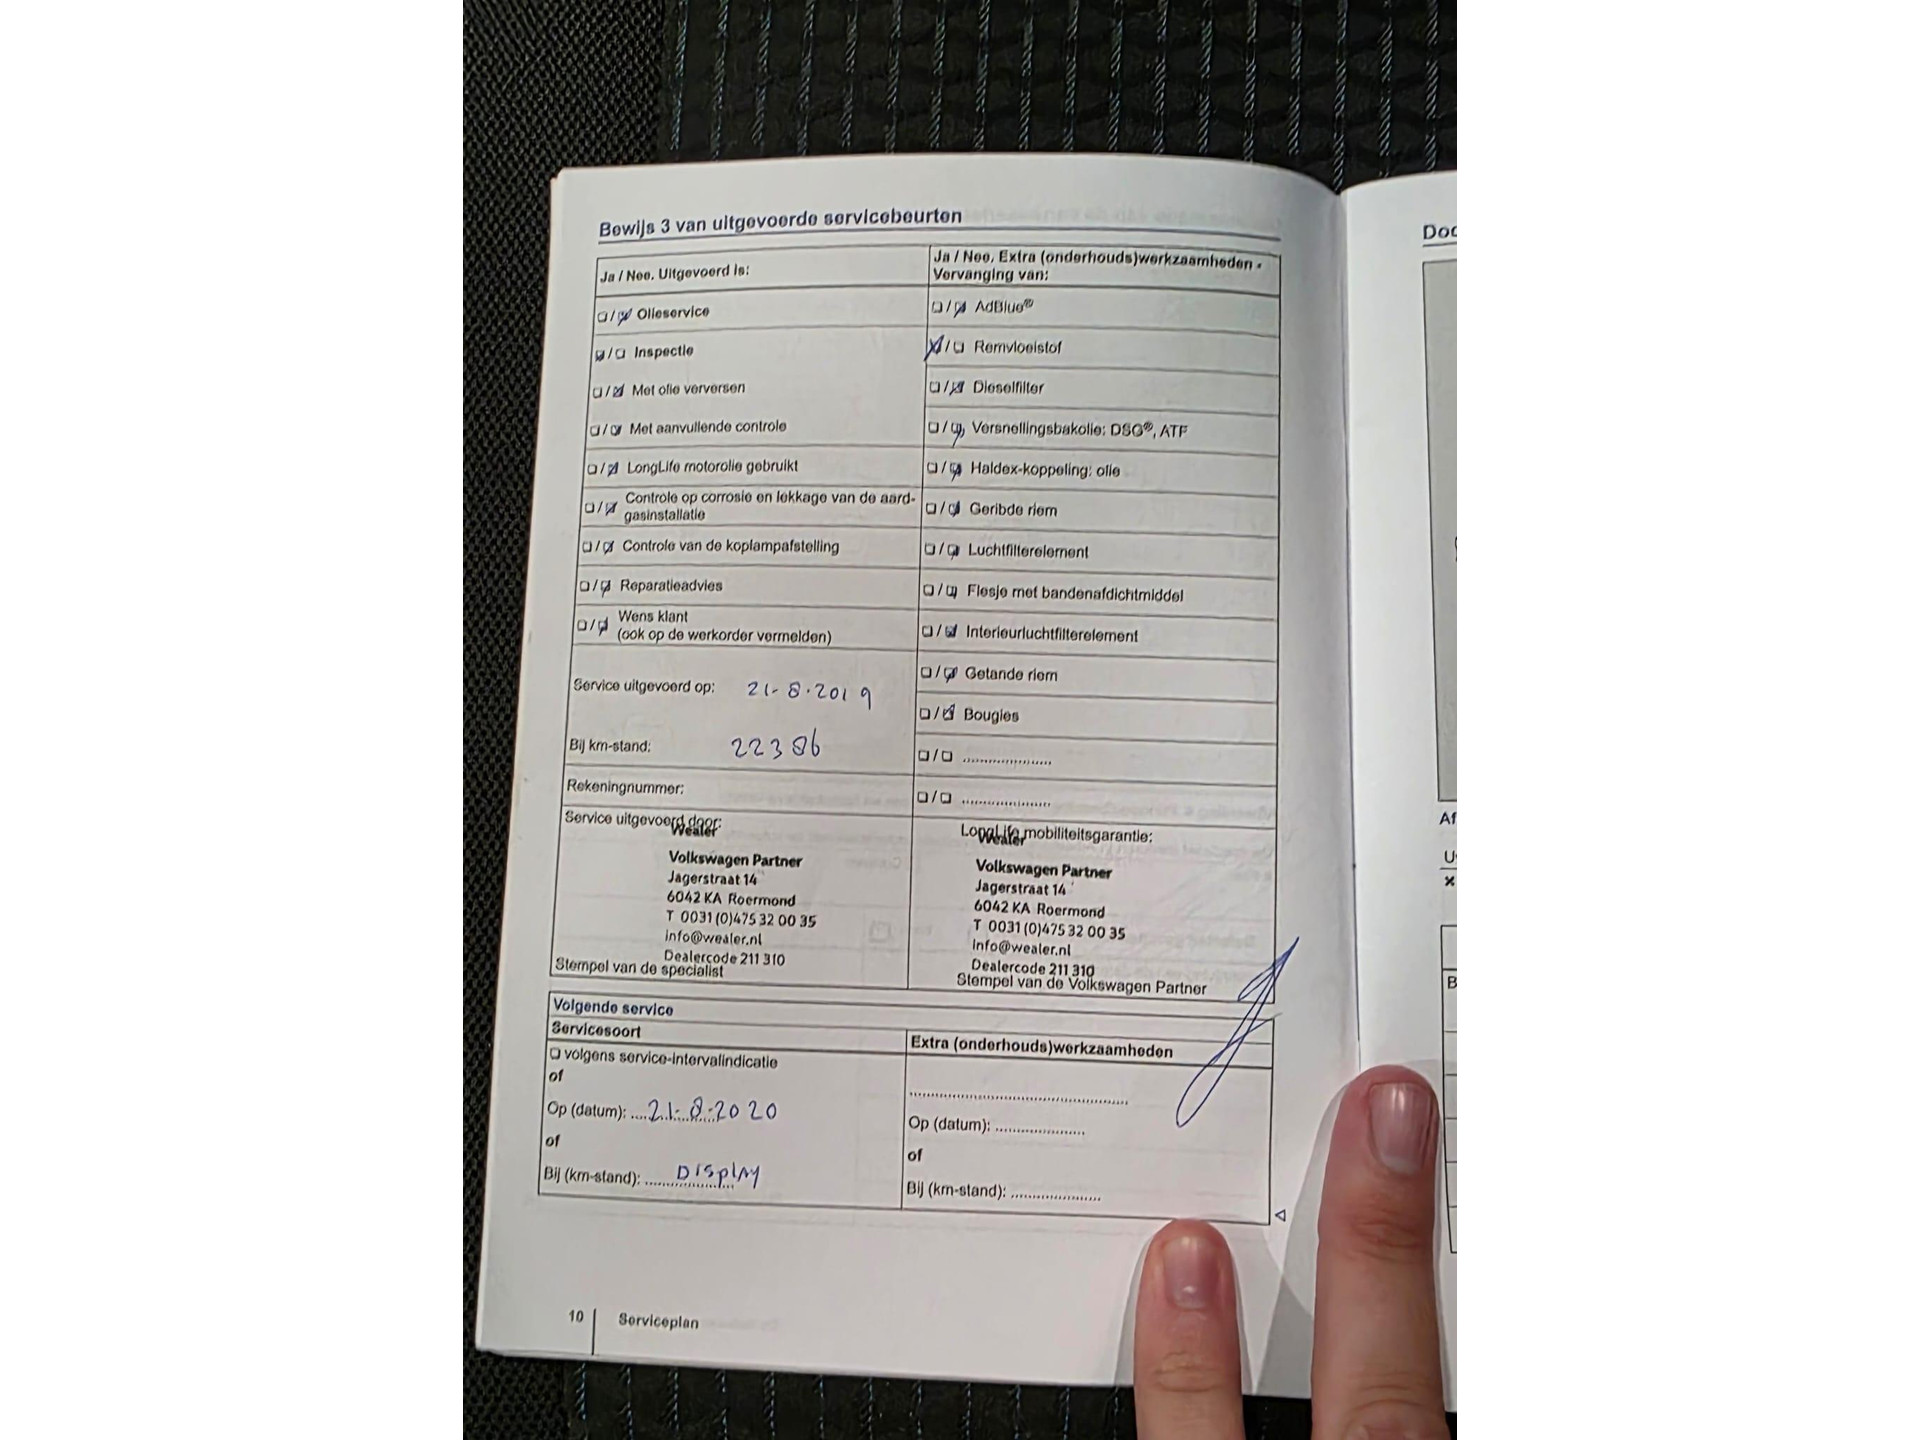 Bewijs 3 van uitgevoerde servicebeurten
Ja / Nee. Uitgevoerd is:
☐ / ☑ Olieservice
☑ / ☐ Inspectie
☐ / ☑ Met olie verversen
☐ / ☑ Met aanvullende controle
☐ / ☑ LongLife motorolie gebruikt
☐ / ☑ Controle op corrosie en lekkage van de aard-
gasinstallatie
☐ / ☑ Controle van de koplampafstelling
☐ / ☑ Reparatieadvies
☐ / ☑ Wens klant
(ook op de werkorder vermelden)
Service uitgevoerd op: 21-8-2019
Bij km-stand: 22386
Rekeningnummer:
Service uitgevoerd door:
Wealer
Volkswagen Partner
Jagerstraat 14
6042 KA Roermond
T 0031 (0)475 32 00 35
info@wealer.nl
Dealercode 211 310
Stempel van de specialist
Ja / Nee. Extra (onderhouds)werkzaamheden -
Vervanging van:
☐ / ☑ AdBlue®
☑ / ☐ Remvloeistof
☐ / ☑ Dieselfilter
☐ / ☑ Versnellingsbakolie: DSG®, ATF
☐ / ☑ Haldex-koppeling: olie
☐ / ☑ Geribde riem
☐ / ☑ Luchtfilterelement
☐ / ☑ Flesje met bandenafdichtmiddel
☐ / ☑ Interieurluchtfilterelement
☐ / ☑ Getande riem
☐ / ☑ Bougies
☐ / ☐ .....................
☐ / ☐ .....................
LongLife mobiliteitsgarantie:
Wealer
Volkswagen Partner
Jagerstraat 14
6042 KA Roermond
T 0031 (0)475 32 00 35
info@wealer.nl
Dealercode 211 310
Stempel van de Volkswagen Partner
Volgende service
Servicesoort
☐ volgens service-intervalindicatie
of
Op (datum): 21-8-2020
of
Bij (km-stand): Display
Extra (onderhouds)werkzaamheden
..................................................
Op (datum): .....................
of
Bij (km-stand): .....................
10 Serviceplan
Doc
Af
B